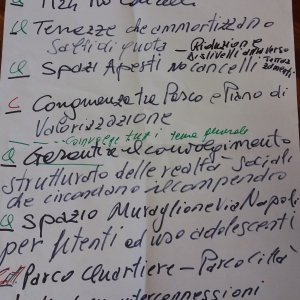 H24 No Cancelli
Q Terrazze che ammortizzano
Salti di quota – Riduzione
Dislivelli attraverso
Terrazzamenti
Q Spazi Aperti No cancelli
C Congruenza tra Parco e Piano di
Valorizzazione
Coinvolge tutti tema generale
Q Garantire il coinvolgimento
strutturato delle realtà sociali
che circondano il comprendio
Q Spazio Muraglione Via Napoli
per utenti ed uso adolescenti
Parco Quartiere – Parco Città
interconnessioni